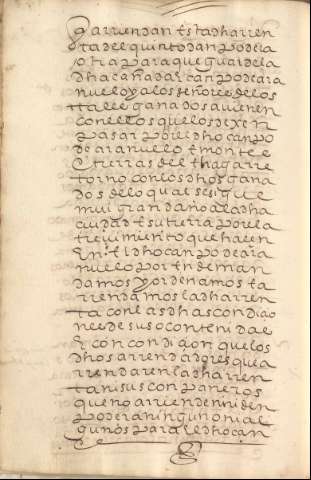 q arriendan esta dha rren
ta de el quinto dan poder a
otra para que guarde la
dha cañada e canpo de ara
nuelo y a los señores de los
tales ganados avienen
con ellos que los dexen
pasar por el dho canpo
de arañuelo e monte
e tierras del
torno con los dhos gana
dos de lo qual se sigue
mui gran daño a la dha
ciudad e su tierra por la
que hacen
en el dho canpo de ara
nuelo por ende man
damos y ordenamos e a
rrendamos la dha rren
ta con las dhas condicio
nes de suso contenidas
e con condiçion que los
dhos arrendadores que a
rrendaren la dha rren
ta ni sus conpaneros
que no arrienden ni den
poder a ninguno ni al
gunos para el dho can